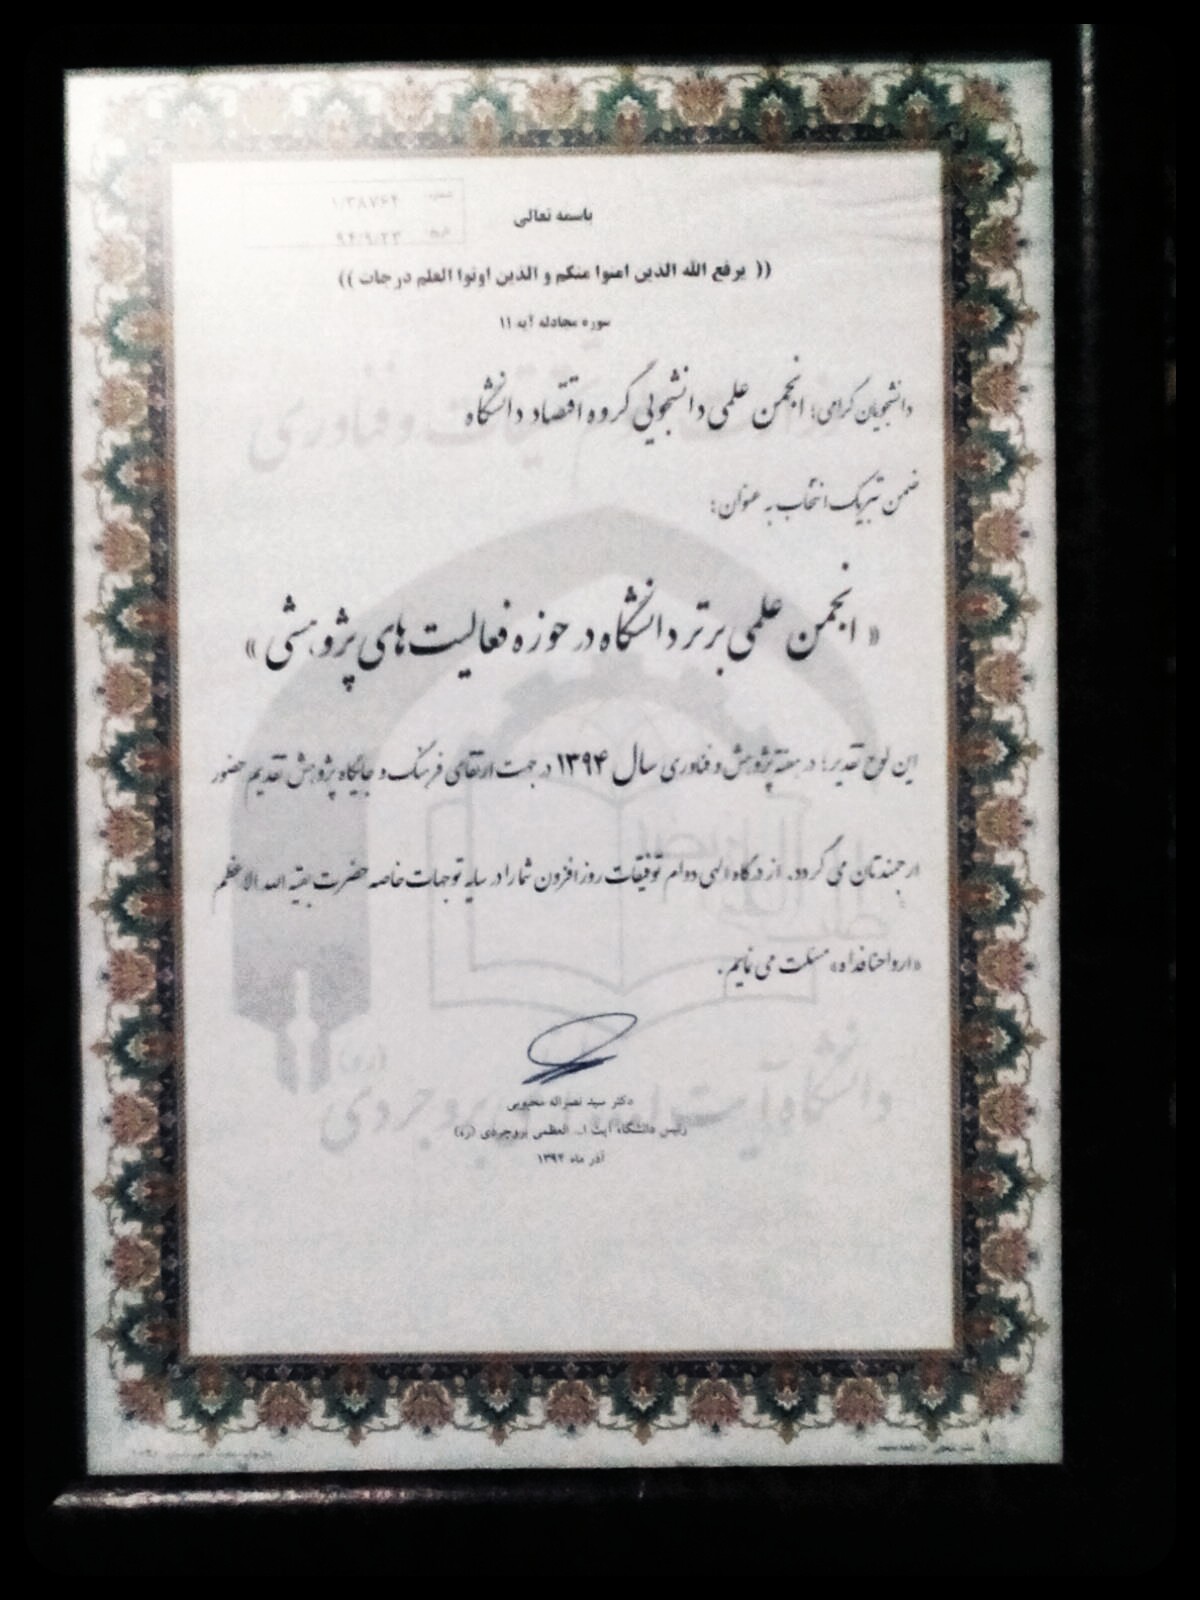 باسمه تعالی
شماره ۱/۳۸۷۶۴
۹۴/۹/۲۳
(( یرفع الله الذین امنوا منکم و الذین اوتوا العلم درجات ))
سوره مجادله آیه ۱۱
دانشجویان گرامی؛ انجمن علمی دانشجویی گروه اقتصاد دانشگاه
ضمن تبریک انتخاب به عنوان:
« انجمن علمی برتر دانشگاه در حوزه فعالیت های پژوهشی »
این لوح تقدیر را در هفته پژوهش و فناوری سال ۱۳۹۴ در جهت ارتقای فرهنگ و جایگاه پژوهش تقدیم حضور
ارجمندتان می گردد. از درگاه الهی دوام توفیقات روزافزون شما را در سایه توجهات خاصه حضرت بقیه الله الاعظم
«ارواحنا فداه» مسئلت می نمایم.
دکتر سید نصراله محبوبی
رئیس دانشگاه آیت ا... العظمی بروجردی (ره)
آذر ماه ۱۳۹۴